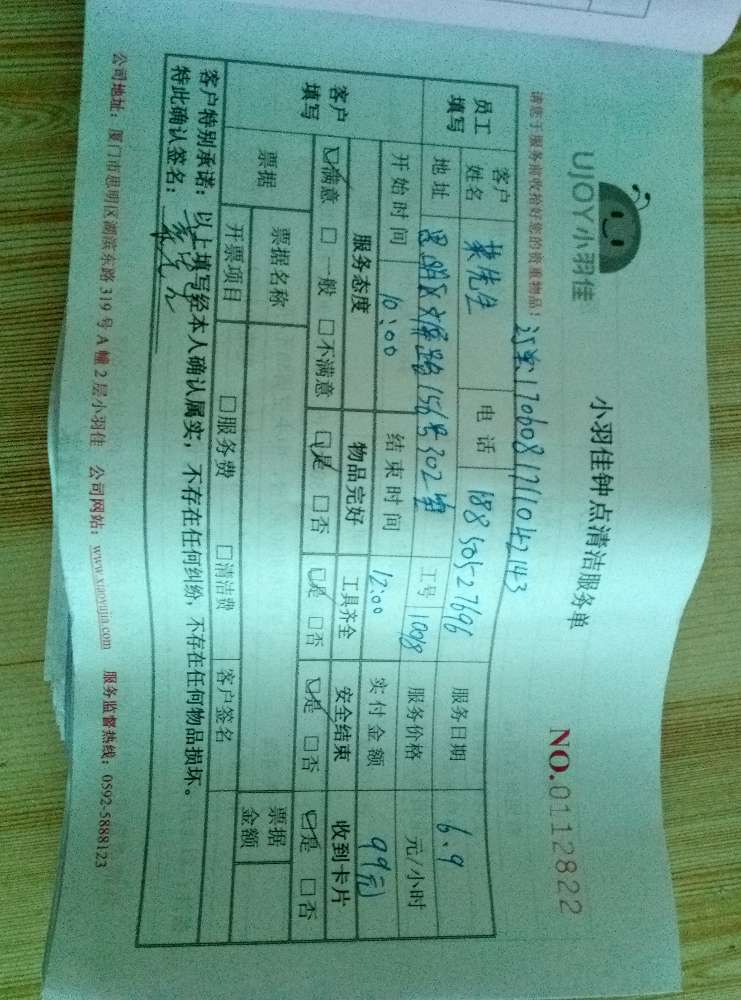 UJOY小羽佳
小羽佳钟点清洁服务单
NO.0112822
请您于服务前收拾好您的贵重物品！
订单1706081711042143
员工填写 客户姓名 先生 电话 18850527696 服务日期 6.9
地址 思明区文屏路156号302室 工号 1098 服务价格 元/小时
开始时间 10:00 结束时间 12:00 实付金额 99元
客户填写 服务态度 物品完好 工具齐全 安全结束 收到卡片
☑满意 □一般 □不满意 ☑是 □否 ☑是 □否 ☑是 □否 ☑是 □否
票据 票据名称 票据金额
开票项目 □服务费 □清洁费 客户签名
客户特别承诺：以上填写经本人确认属实，不存在任何纠纷，不存在任何物品损坏。
特此确认签名：
公司地址：厦门市思明区湖滨东路319号A幢2层小羽佳 公司网站：www.xiaoyujia.com 服务监督热线：0592-5888123